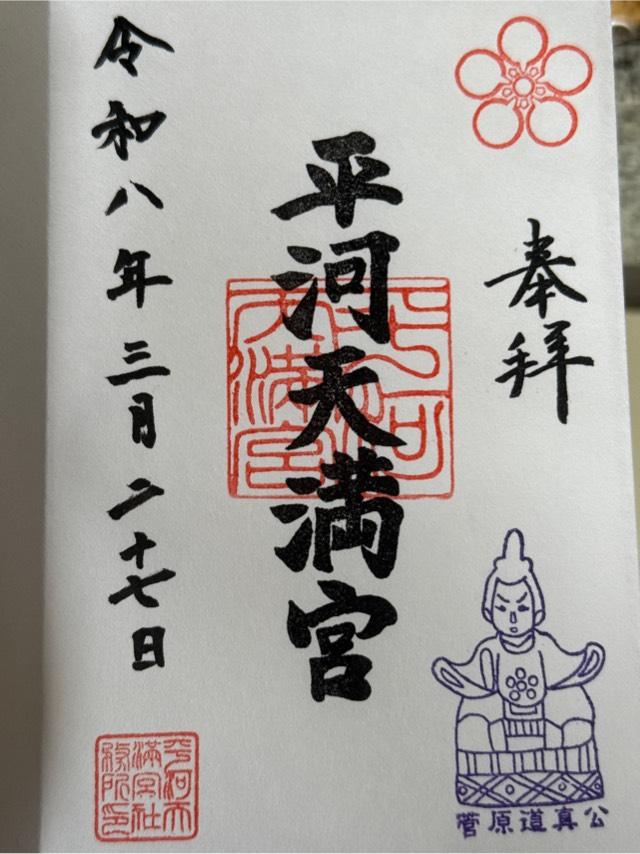 奉拝
平河天満宮
平河天満宮
令和八年三月二十七日
平河天満宮社務所印
菅原道真公